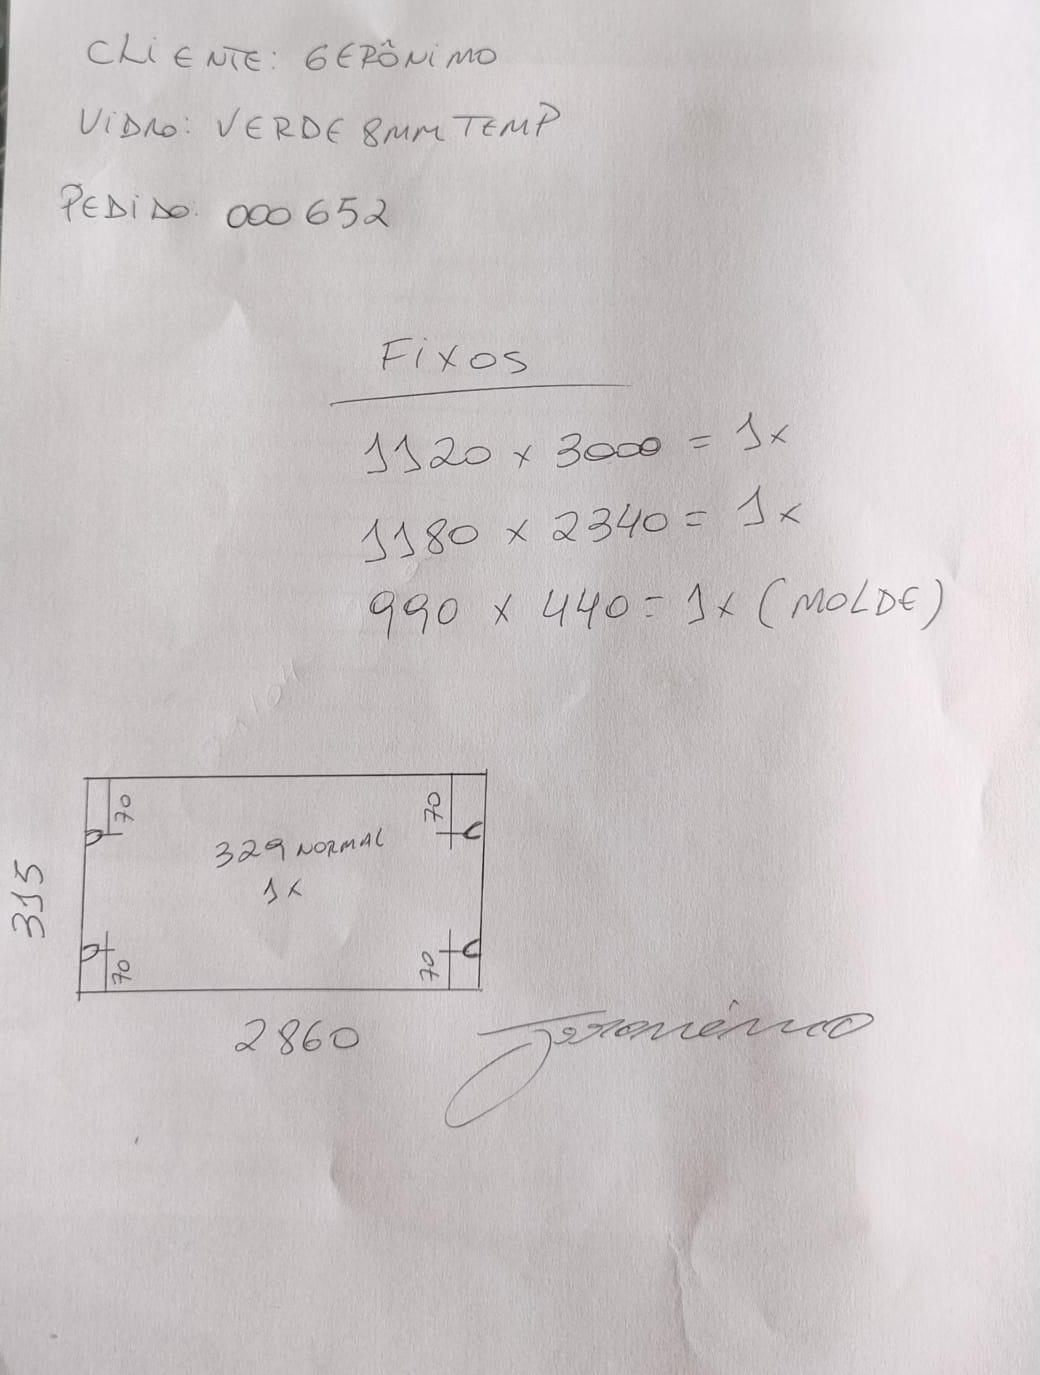 CLIENTE: GERÔNIMO
VIDRO: VERDE 8MM TEMP
PEDIDO: 000652
FIXOS
1120 x 3000 = 1x
1180 x 2340 = 1x
990 x 440 = 1x (MOLDE)
70 70
329 NORMAL
1x
315
70 70
2860
Jeronimo